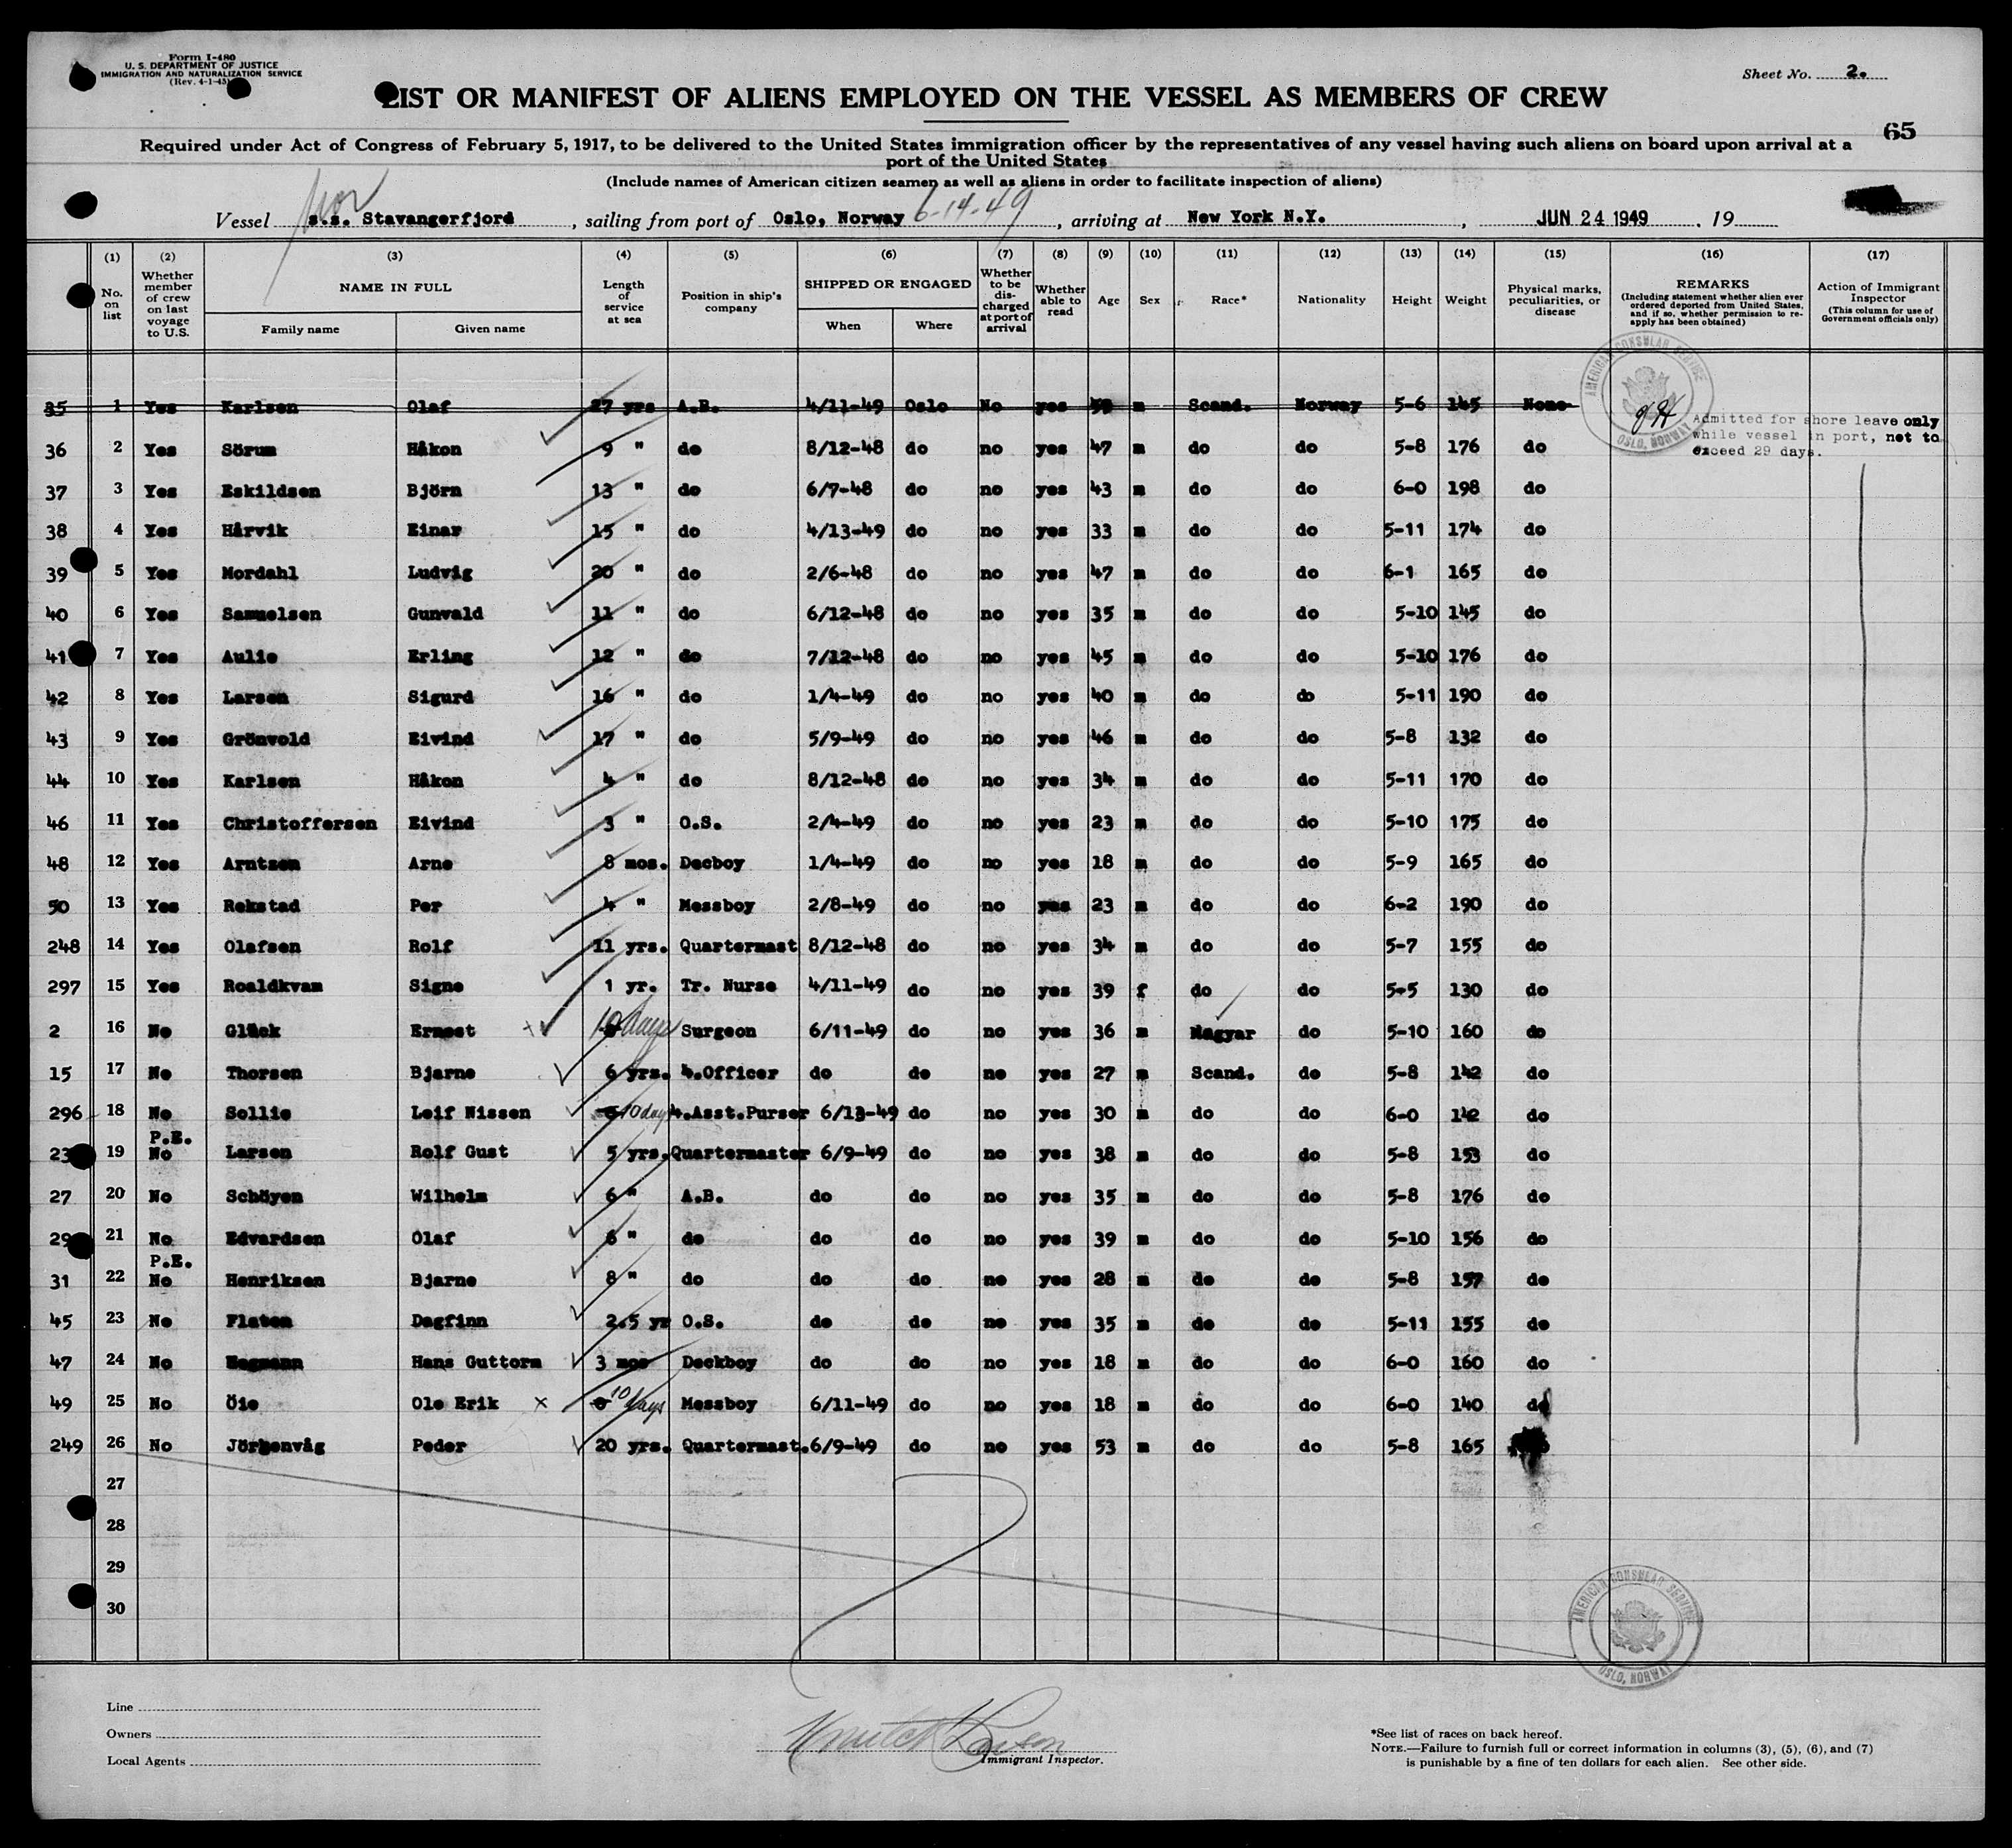 Form I-480
U. S. DEPARTMENT OF JUSTICE
IMMIGRATION AND NATURALIZATION SERVICE
(Rev. 4-1-45)
Sheet No. 2.
LIST OR MANIFEST OF ALIENS EMPLOYED ON THE VESSEL AS MEMBERS OF CREW
65
Required under Act of Congress of February 5, 1917, to be delivered to the United States immigration officer by the representatives of any vessel having such aliens on board upon arrival at a
port of the United States
(Include names of American citizen seamen as well as aliens in order to facilitate inspection of aliens)
Vessel s.s. Stavangerfjord, sailing from port of Oslo, Norway 6-14-49, arriving at New York N.Y., JUN 24 1949, 19
(1) (2) (3) (4) (5) (6) (7) (8) (9) (10) (11) (12) (13) (14) (15) (16) (17)
No. on list Whether member of crew on last voyage to U.S. NAME IN FULL Family name Given name Length of service at sea Position in ship's company SHIPPED OR ENGAGED When Where Whether to be discharged at port of arrival Whether able to read Age Sex Race* Nationality Height Weight Physical marks, peculiarities, or disease REMARKS (Including statement whether alien ever ordered deported from United States, and if so, whether permission to reapply has been obtained) Action of Immigrant Inspector (This column for use of Government officials only)
AMERICAN CONSULAR SERVICE OSLO, NORWAY
35 1 Yes Karlsen Olaf 27 yrs A.B. 4/11-49 Oslo No yes m Scand. Norway 5-6 145 None
Admitted for shore leave only
while vessel in port, not to
exceed 29 days.
36 2 Yes Sörum Håkon 9 " do 8/12-48 do no yes 47 m do do 5-8 176 do
37 3 Yes Eskildsen Björn 13 " do 6/7-48 do no yes 43 m do do 6-0 198 do
38 4 Yes Hårvik Einar 15 " do 4/13-49 do no yes 33 m do do 5-11 174 do
39 5 Yes Mordahl Ludvig 20 " do 2/6-48 do no yes 47 m do do 6-1 165 do
40 6 Yes Samuelsen Gunvald 11 " do 6/12-48 do no yes 35 m do do 5-10 145 do
41 7 Yes Aulie Erling 12 " do 7/12-48 do no yes 45 m do do 5-10 176 do
42 8 Yes Larsen Sigurd 16 " do 1/4-49 do no yes 40 m do do 5-11 190 do
43 9 Yes Grönvold Eivind 17 " do 5/9-49 do no yes 46 m do do 5-8 132 do
44 10 Yes Karlsen Håkon 4 " do 8/12-48 do no yes 34 m do do 5-11 170 do
46 11 Yes Christoffersen Eivind 3 " O.S. 2/4-49 do no yes 23 m do do 5-10 175 do
48 12 Yes Arntsen Arne 8 mos. Decboy 1/4-49 do no yes 18 m do do 5-9 165 do
50 13 Yes Rekstad Per 4 " Messboy 2/8-49 do no yes 23 m do do 6-2 190 do
248 14 Yes Olafsen Rolf 11 yrs. Quartermast 8/12-48 do no yes 34 m do do 5-7 155 do
297 15 Yes Roaldkvam Signe 1 yr. Tr. Nurse 4/11-49 do no yes 39 f do do 5-5 130 do
2 16 No Glück Ernest 10 days Surgeon 6/11-49 do no yes 36 m Magyar do 5-10 160 do
15 17 No Thorsen Bjarne 6 yrs. 4.Officer do do no yes 27 m Scand. do 5-8 142 do
296 18 No Sollie Leif Nissen 10 day 4.Asst.Purser 6/13-49 do no yes 30 m do do 6-0 142 do
23 19 P.E. No Larsen Rolf Gust 5 yrs. Quartermaster 6/9-49 do no yes 38 m do do 5-8 153 do
27 20 No Schöyen Wilhelm 6 " A.B. do do no yes 35 m do do 5-8 176 do
29 21 No Edvardsen Olaf 6 " do do do no yes 39 m do do 5-10 156 do
31 22 P.E. No Henriksen Bjarne 8 " do do do no yes 28 m do do 5-8 157 do
45 23 No Flaten Dagfinn 2.5 yr O.S. do do no yes 35 m do do 5-11 155 do
47 24 No Hegmann Hans Guttorm 3 mos Deckboy do do no yes 18 m do do 6-0 160 do
49 25 No Öie Ole Erik x 0 10 days Messboy 6/11-49 do no yes 18 m do do 6-0 140 do
249 26 No Peder 20 yrs. Quartermast. 6/9-49 do no yes 53 m do do 5-8 165
27
28
29
30
AMERICAN CONSULAR SERVICE OSLO, NORWAY
Line
Owners
Local Agents
Immigrant Inspector.
*See list of races on back hereof.
NOTE.—Failure to furnish full or correct information in columns (3), (5), (6), and (7)
is punishable by a fine of ten dollars for each alien. See other side.